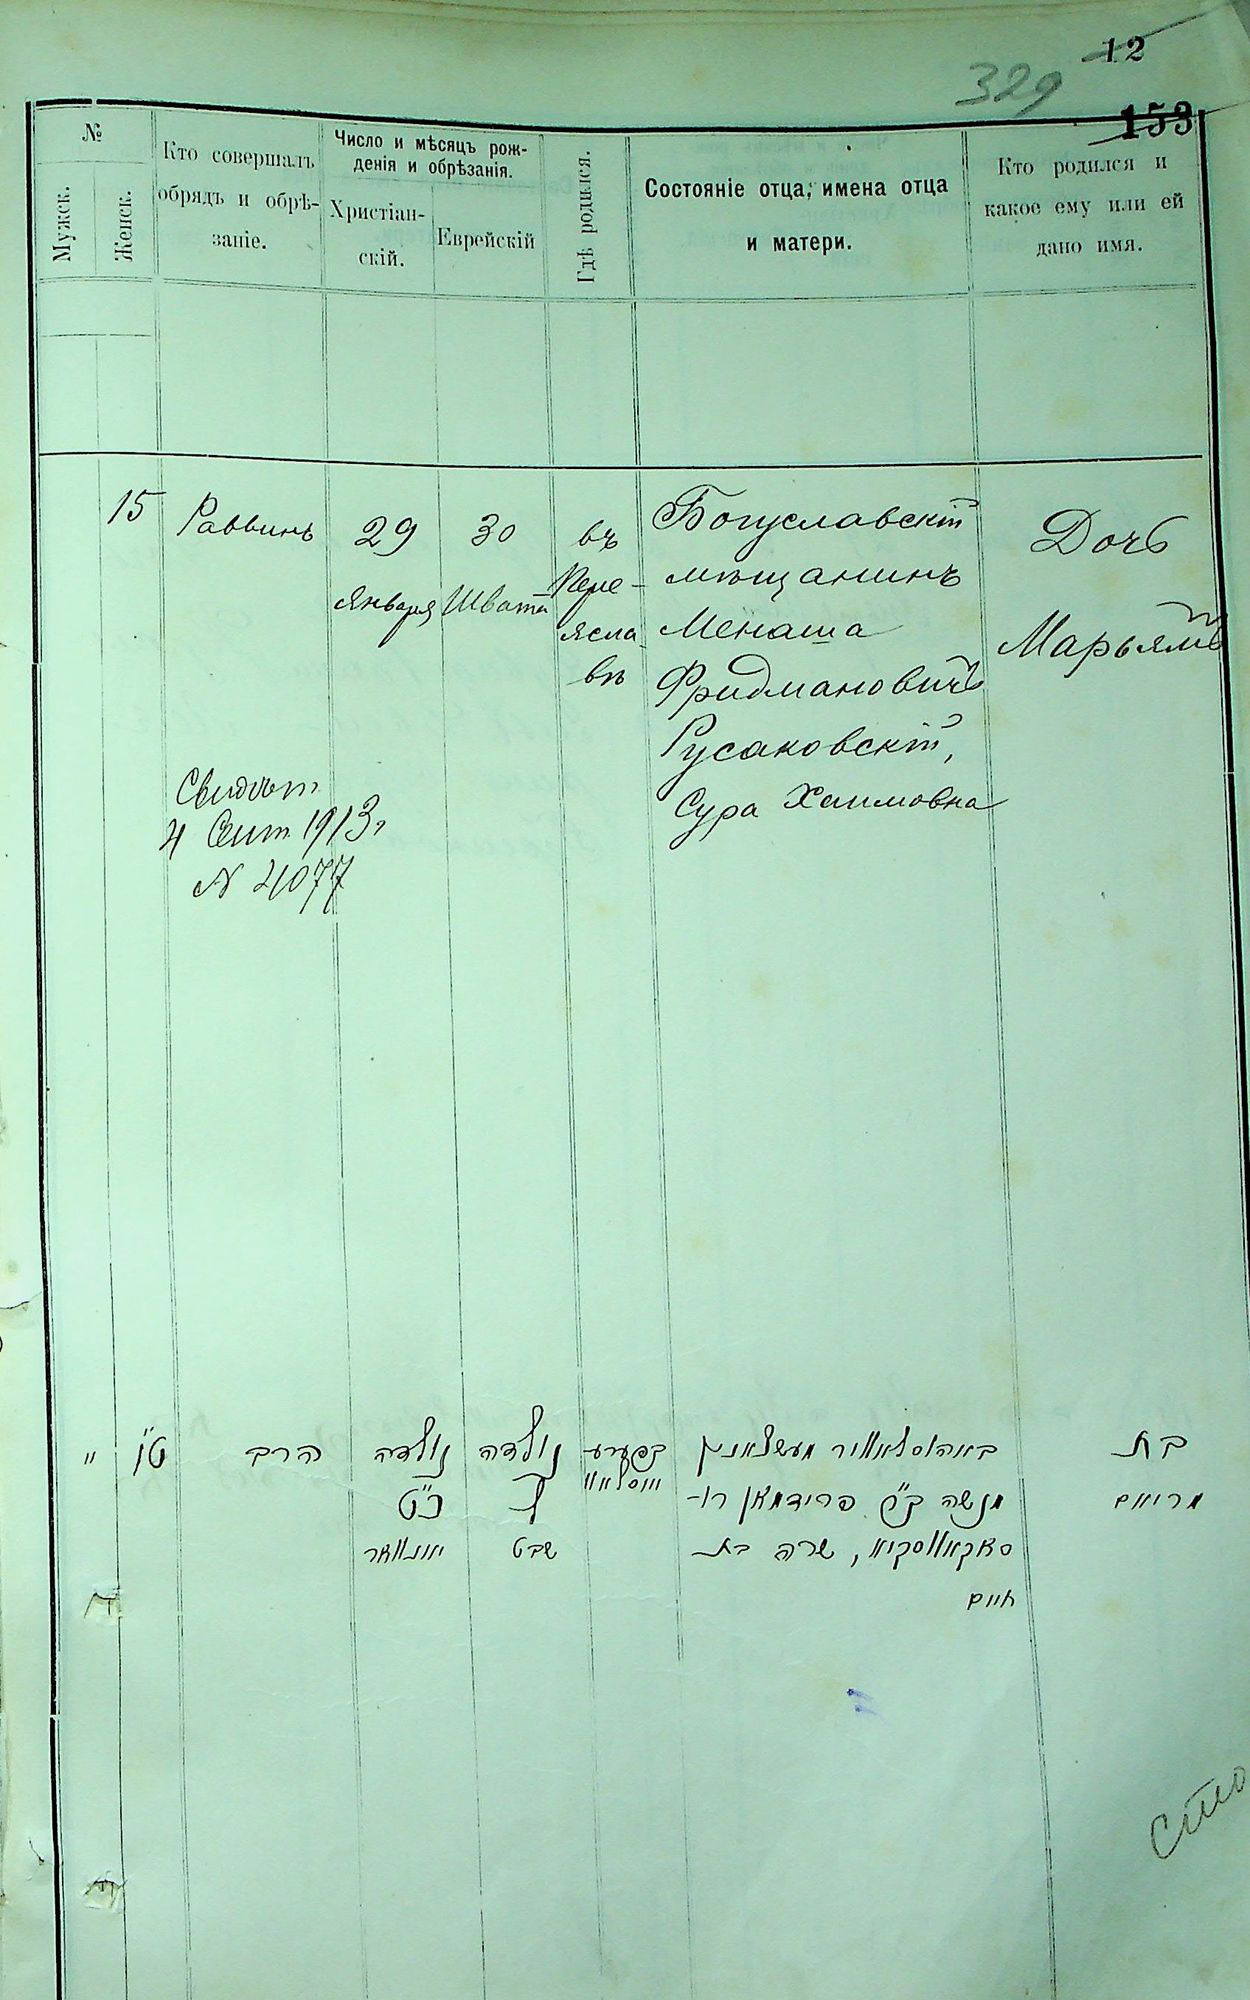 12
329
153
№
Мужск.
Женск.
Кто совершалъ
обрядъ и обрѣ-
заніе.
Число и мѣсяцъ рож-
денія и обрѣзанія.
Христіан-
скій.
Еврейскій
Гдѣ родился.
Состояніе отца, имена отца
и матери.
Кто родился и
какое ему или ей
дано имя.
15
Раввинъ
29
Января
30
Швата
въ
Пере-
ясла
вѣ
Богуславскій
мѣщанинъ
Менаша
Фридмановичъ
Русаковскій,
Сура Хаимовна
Дочь
Марьямъ
Свидѣт
4 Сент 1913г
N 4077
"
ט"ו
הרב
נולדה
כ"ט
יאנואר
נולדה
ל
שבט
מנשה ב"ר פרידמאן רו-
סאקאווסקיא, שרה בת
חיים
בת
מרים